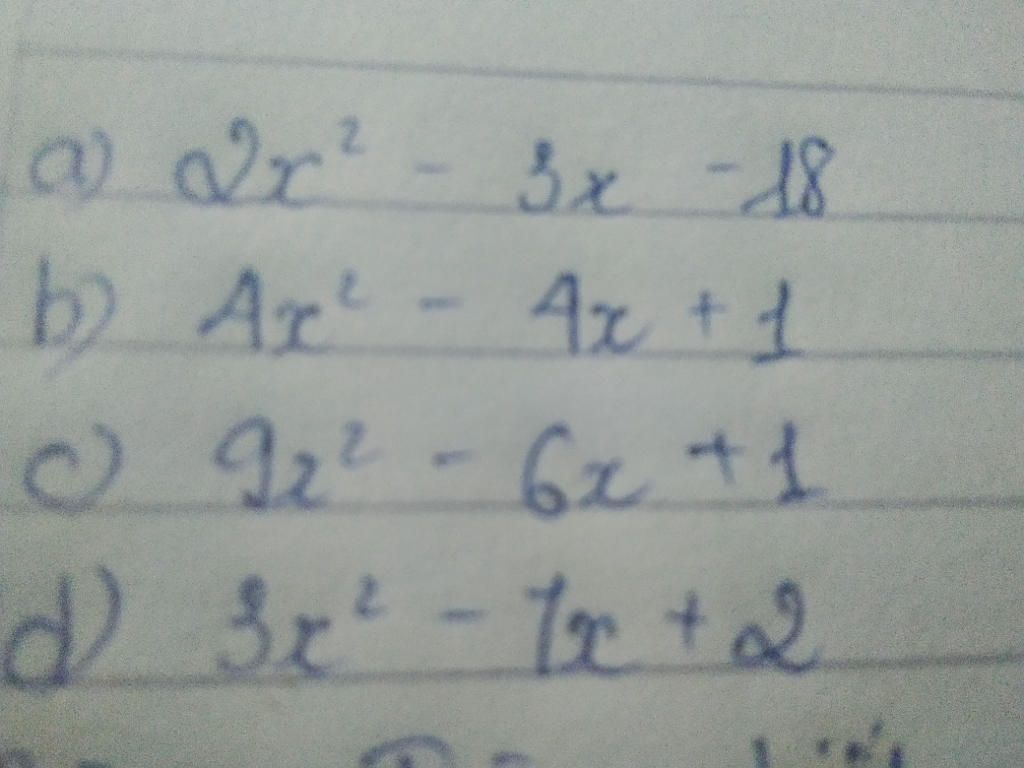 a) 2x² - 3x - 18
b) 4x² - 4x + 1
c) 9x² - 6x + 1
d) 3x² - 7x + 2